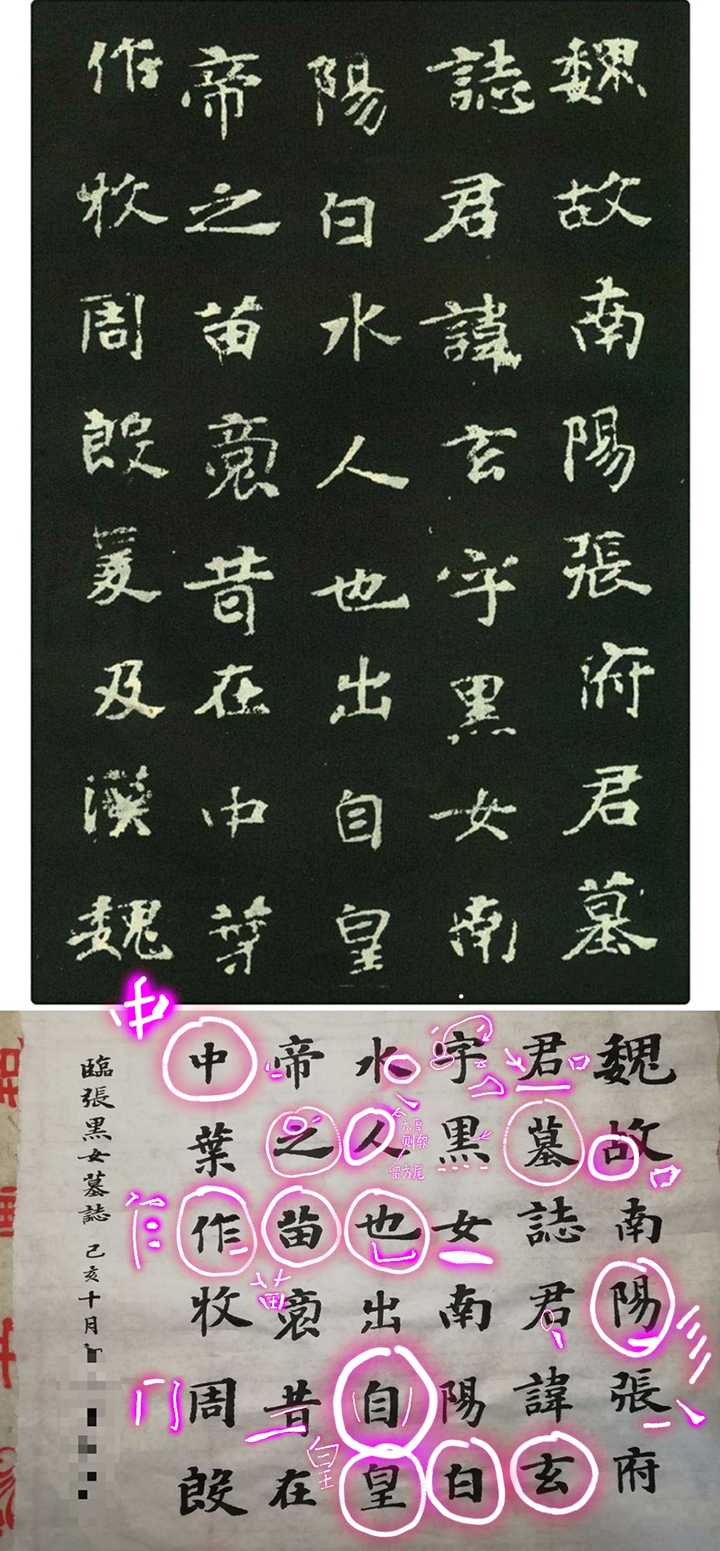 魏故南陽張府君墓
誌君諱玄字黑女南
陽白水人也出自皇
帝之苗裔昔在中葉
作牧周殷爰及漢魏
魏故南陽張府
君墓誌君諱玄
字黑女南陽白
水人也出自皇
帝之苗裔昔在
中葉作牧周殷
臨張黑女墓誌 己亥十月
中
苗
皇